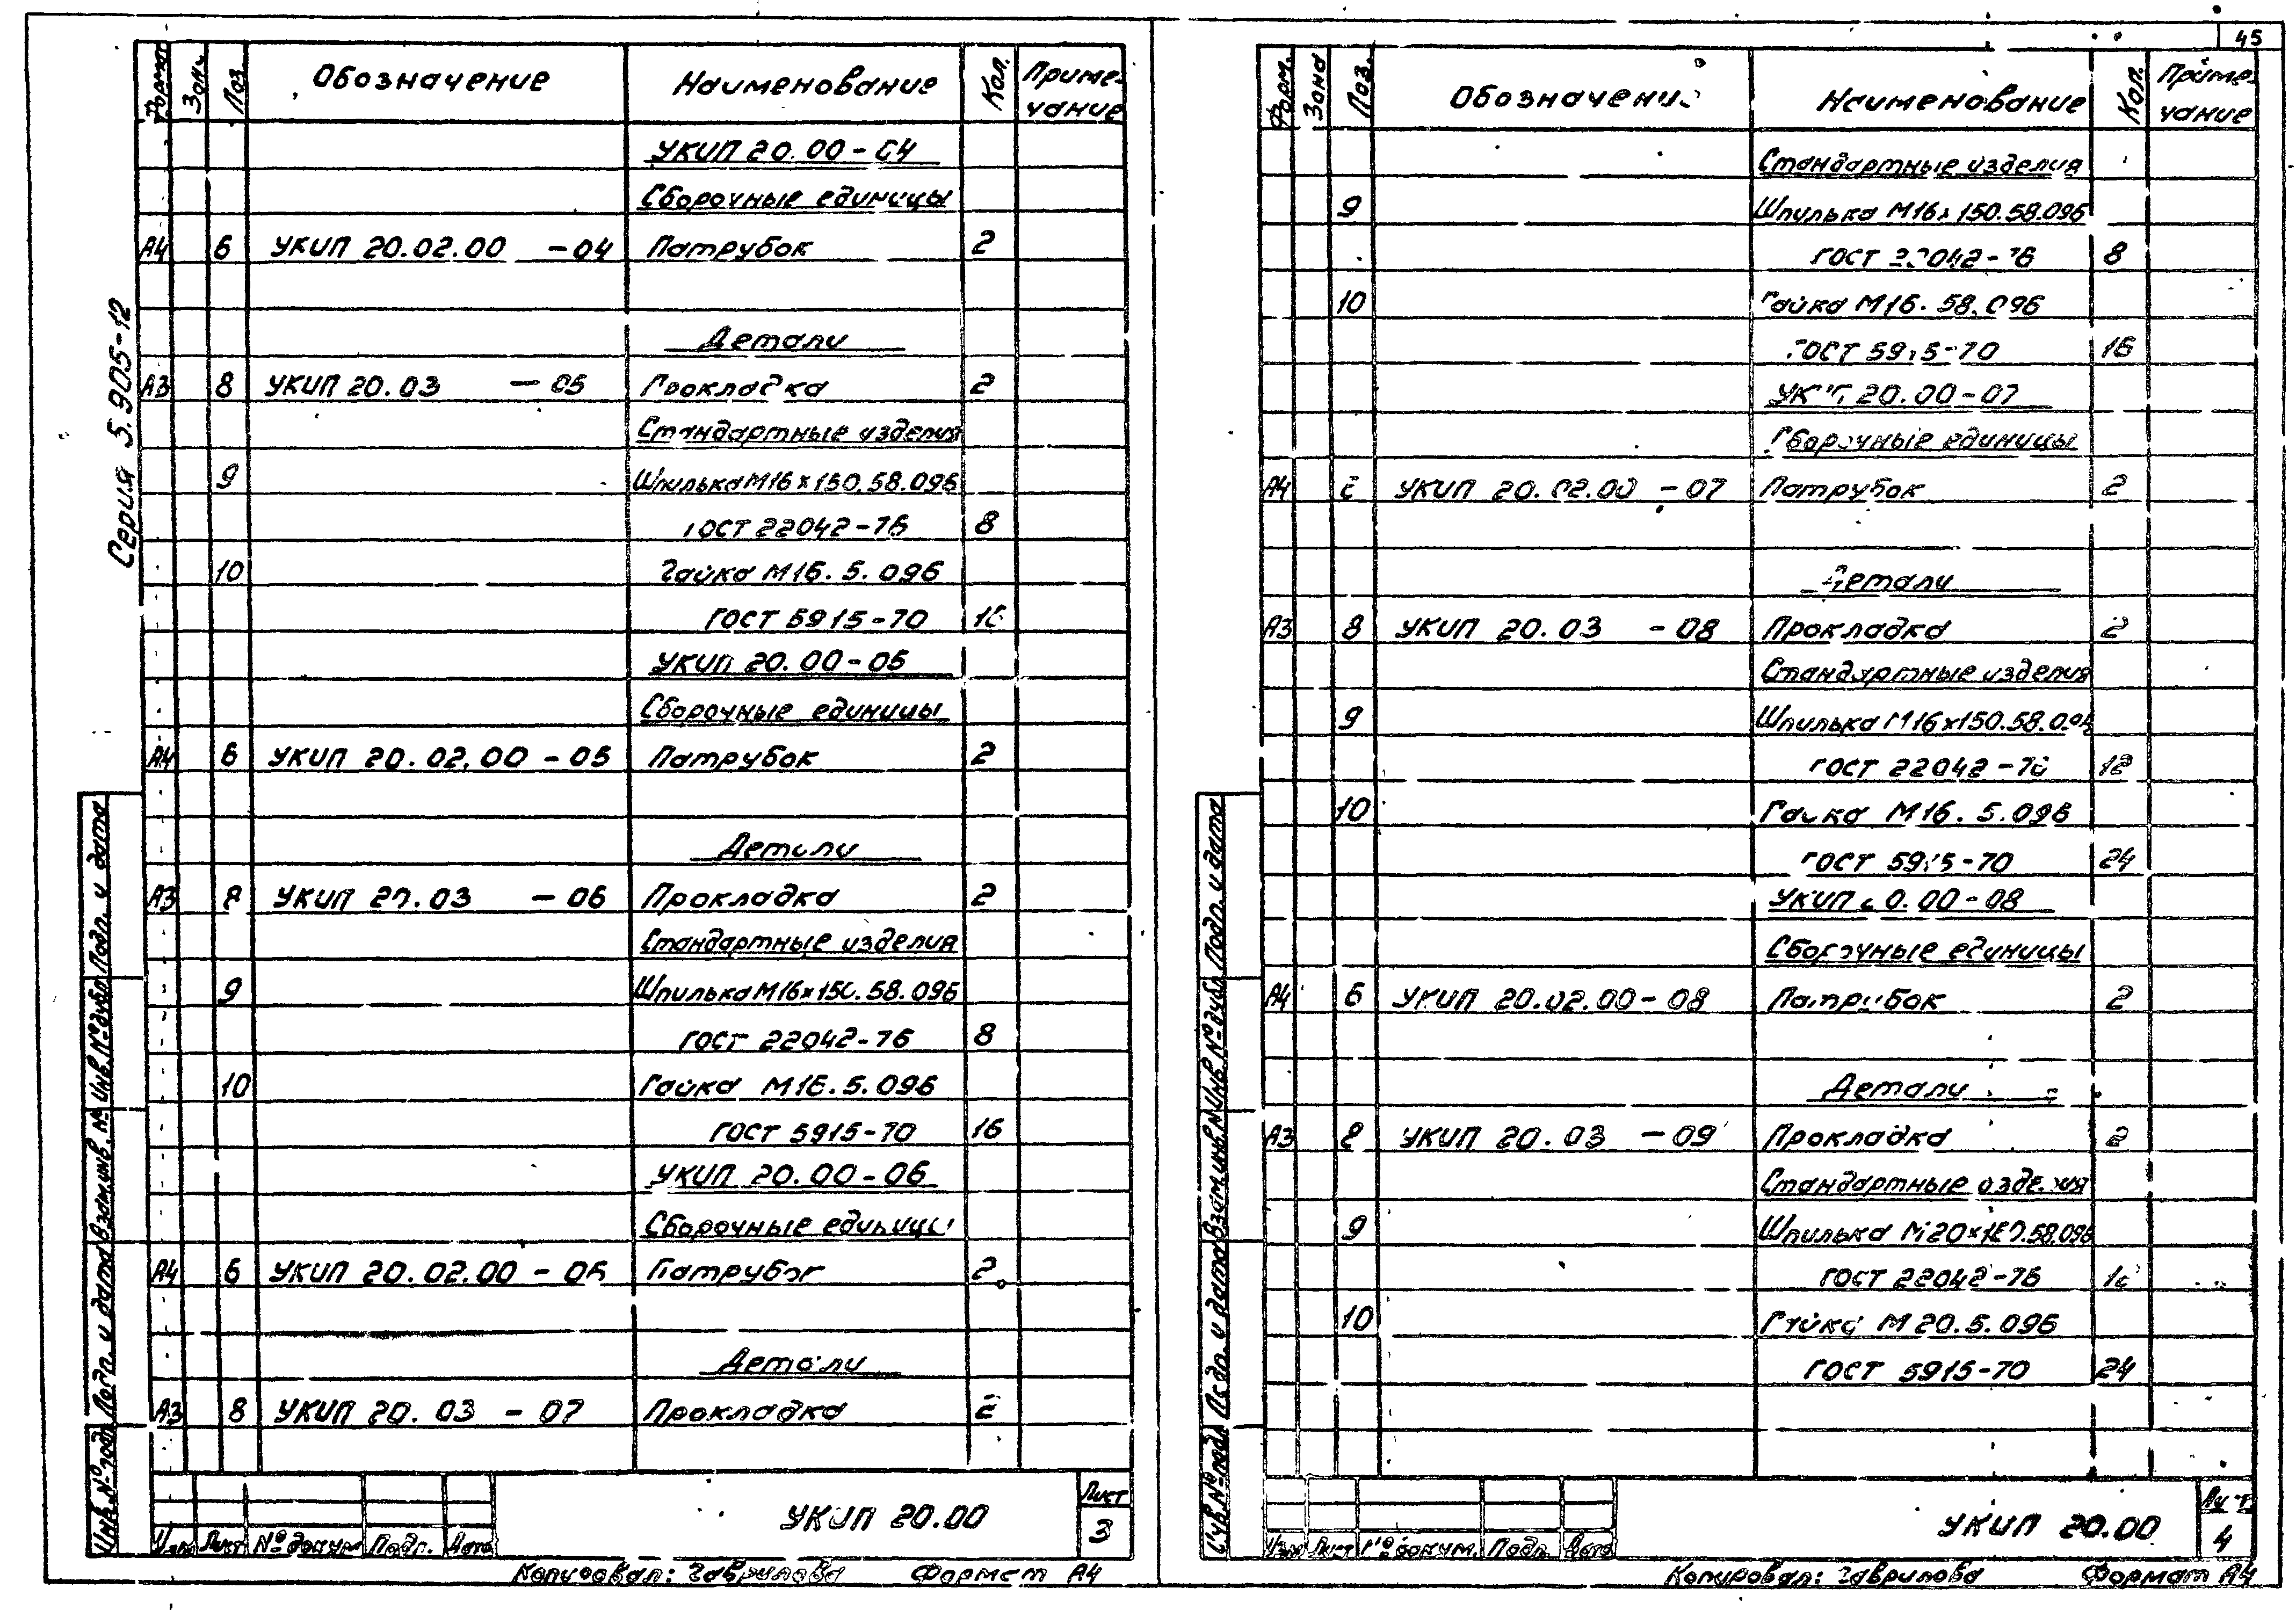 45
Серия 5.905-12
Формат Зона Поз. Обозначение Наименование Кол. Приме-
чание
УКИП 20.00-04
Сборочные единицы
А4 6 УКИП 20.02.00 -04 Патрубок 2
Детали
А3 8 УКИП 20.03 -05 Прокладка 2
Стандартные изделия
9 Шпилька М16×150.58.096
ГОСТ 22042-76 8
10 Гайка М16.5.096
ГОСТ 5915-70 16
УКИП 20.00-05
Сборочные единицы
А4 6 УКИП 20.02.00 -05 Патрубок 2
Детали
А3 8 УКИП 20.03 -06 Прокладка 2
Стандартные изделия
9 Шпилька М16×150.58.096
ГОСТ 22042-76 8
10 Гайка М16.5.096
ГОСТ 5915-70 16
УКИП 20.00-06
Сборочные единицы
А4 6 УКИП 20.02.00 -06 Патрубок 2
Детали
А3 8 УКИП 20.03 -07 Прокладка 2
Инв.№ подл. Подп. и дата Взам.инв.№ Инв.№ дубл. Подп. и дата
Изм Лист № докум Подп. Дата
УКИП 20.00
Лист
3
Копировал: Гаврилова Формат А4
Форм. Зона Поз. Обозначение Наименование Кол. Приме-
чание
Стандартные изделия
9 Шпилька М16×150.58.096
ГОСТ 22042-76 8
10 Гайка М16.58.096
ГОСТ 5915-70 16
УКИП 20.00-07
Сборочные единицы
А4 6 УКИП 20.02.00 -07 Патрубок 2
Детали
А3 8 УКИП 20.03 -08 Прокладка 2
Стандартные изделия
9 Шпилька М16×150.58.096
ГОСТ 22042-76 12
10 Гайка М16.5.096
ГОСТ 5915-70 24
УКИП 20.00-08
Сборочные единицы
А4 6 УКИП 20.02.00-08 Патрубок 2
Детали
А3 8 УКИП 20.03 -09 Прокладка 2
Стандартные изделия
9 Шпилька
ГОСТ 22042-76
10 Гайка М20.5.096
ГОСТ 5915-70 24
Инв.№ подл. Подп. и дата Взам.инв.№ Инв.№ дубл. Подп. и дата
Изм Лист № докум. Подп. Дата
УКИП 20.00
Лист
4
Копировал: Гаврилова Формат А4